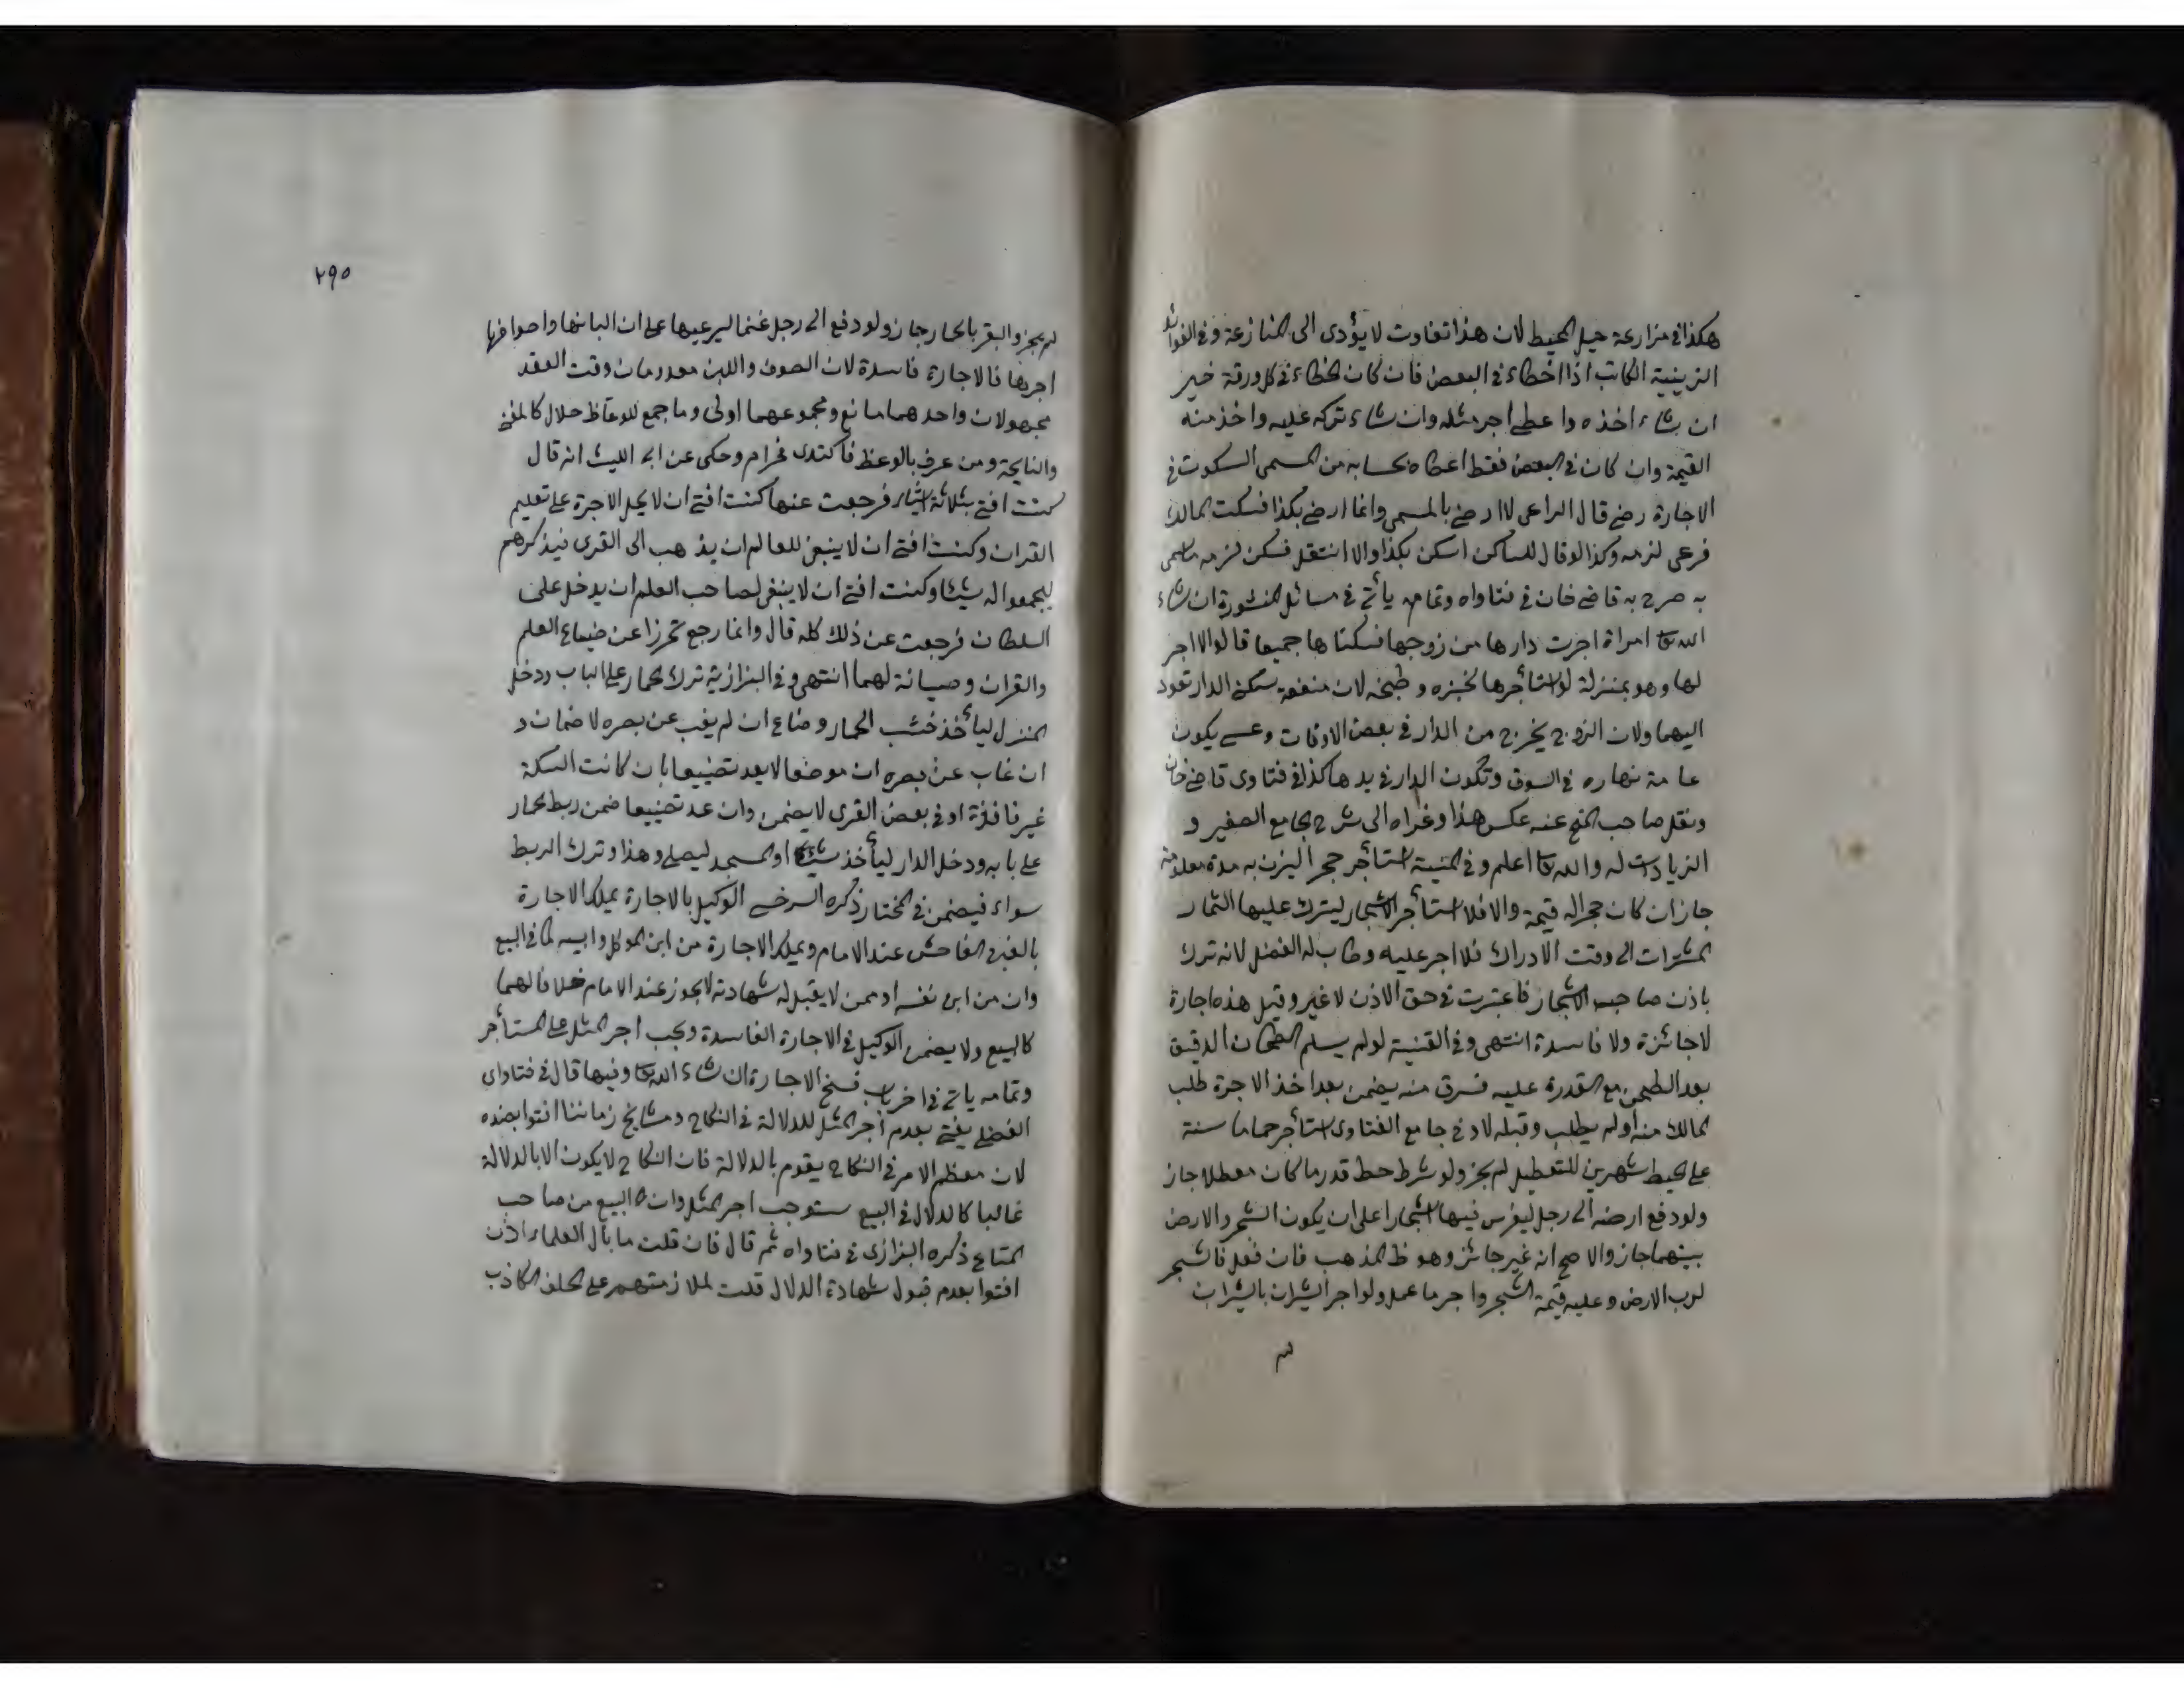 هكذا في مزارعة حيل المحيط لان هذا تفاوت لا يؤدى الى المنازعة وفى الفوائد
الزينية الكاتب اذا اخطاء في البعض فان كان الخطاء في كل ورقة خير
ان شاء اخذه واعطى اجر مثله وان شاء تركه عليه واخذ منه
القيمة وان كان في البعض فقط اعطاه بحسابه من المسمى السكوت في
الاجارة رضى قال الراعى لا ارضى بالمسمى وانما ارضى بكذا فسكت المالك
فرعى لزمه وكذا لو قال للساكن اسكن بكذا والا انتقل فسكن لزمه ما سمى
به صرح به قاضى خان في فتاواه وتمامه يأتى في مسائل المنثورة ان شاء
الله تعا امراة اجرت دارها من زوجها فسكناها جميعا قالوا لا اجر
لها وهو بمنزلة لو استأجرها لخبزه وطبخه لان منفعة سكن الدار تعود
اليهما ولان الزوج يخرج من الدار في بعض الاوقات وعسى يكون
عامة نهاره في السوق وتكون الدار في يدها كذا في فتاوى قاضى خان
ونقل صاحب المنح عنه عكس هذا وغراه الى شرح الجامع الصغير و
الزيادات له والله تعا اعلم وفي المنية استأجر حجر اليزن به مدة معلومة
جاز ان كان حجرا له قيمة والا فلا استأجر الاشجار ليترك عليها الثمار
المشترات الى وقت الادراك فلا اجر عليه وطاب له الفضل لانه ترك
باذن صاحب الاشجار فاعتبرت في حق الاذن لا غير وقيل هذه اجارة
لا جائزة ولا فاسدة انتهى وفى القنية لو لم يسلم الطحان الدقيق
بعد الطحن مع القدرة عليه فسرق منه يضمن بعد اخذ الاجرة طلب
المالك منه او لم يطلب وقبله لا وفى جامع الفتاوى استأجر حماما سنة
على ان يحيط شهرين للتعطيل لم يجز ولو شرط حط قدر ما كان معطلا جاز
ولو دفع ارضه الى رجل ليغرس فيها اشجارا على ان يكون الشجر والارض
بينهما جاز والاصح انه غير جائز وهو ظ المذهب فان فعل فالشجر
لرب الارض وعليه قيمة الشجر واجر ما عمل ولو اجر الثيران بالثيران
لم
٢٩٥
لم يجز والبقر بالحمار جاز ولو دفع الى رجل غنما ليرعيها على ان البانها واصوافها
اجرها فالاجارة فاسدة لان الصوف واللبن معدومان وقت العقد
مجهولان واحدهما مانع ومجموعهما اولى وما جمع للوعاظ حلال كالمغنى
والنايحة ومن عرف بالوعظ فاكتدى فحرام وحكى عن ابى الليث انه قال
كنت افتى بثلاثة اشياء فرجعت عنها كنت افتى ان لا يحل الاجرة على تعليم
القران وكنت افتى ان لا ينبغى للعالم ان يذهب الى القرى فيذكرهم
ليجمعوا له شيئا وكنت افتى ان لا ينبغى لصاحب العلم ان يدخل على
السلطان فرجعت عن ذلك كله قال وانما رجع تحرزا عن ضياع العلم
والقران وصيانة لهما انتهى وفى البزازية ترك الحمار على الباب ودخل
المنزل ليأخذ خشب الحمار وضاع ان لم يغب عن بصره لا ضمان و
ان غاب عن بصره ان موضعا لا يعد تضييعا بان كانت السكة
غير نافذة او في بعض القرى لا يضمن وان عد تضييعا ضمن ربط الحمار
على بابه ودخل الدار ليأخذ شيئا او المسجد ليصلى وهذا وترك الربط
سواء فيضمن في المختار ذكره السرخسى الوكيل بالاجارة يملك الاجارة
بالغبن الفاحش عند الامام ويملك الاجارة من ابن الموكل وابيه كما في البيع
وان من ابن نفسه او ممن لا يقبل له شهادته لا يجوز عند الامام خلافا لهما
كالبيع ولا يضمن الوكيل في الاجارة الفاسدة ويجب اجر المثل على المستأجر
وتمامه يأتى في اخر باب فسخ الاجارة ان شاء الله تعا وفيها قال في فتاوى
الفضلى يفتى بعدم اجر المثل للدلالة في النكاح ومشايخ زماننا افتوا بضده
لان معظم الامر في النكاح يقوم بالدلالة فان النكاح لا يكون الا بالدلالة
غالبا كالدلال في البيع يستوجب اجر المثل وان كان البيع من صاحب
المتاع ذكره البزازى في فتاواه ثم قال فان قلت ما بال العلماء اذن
افتوا بعدم قبول شهادة الدلال قلت لملازمتهم على الحلف الكاذب